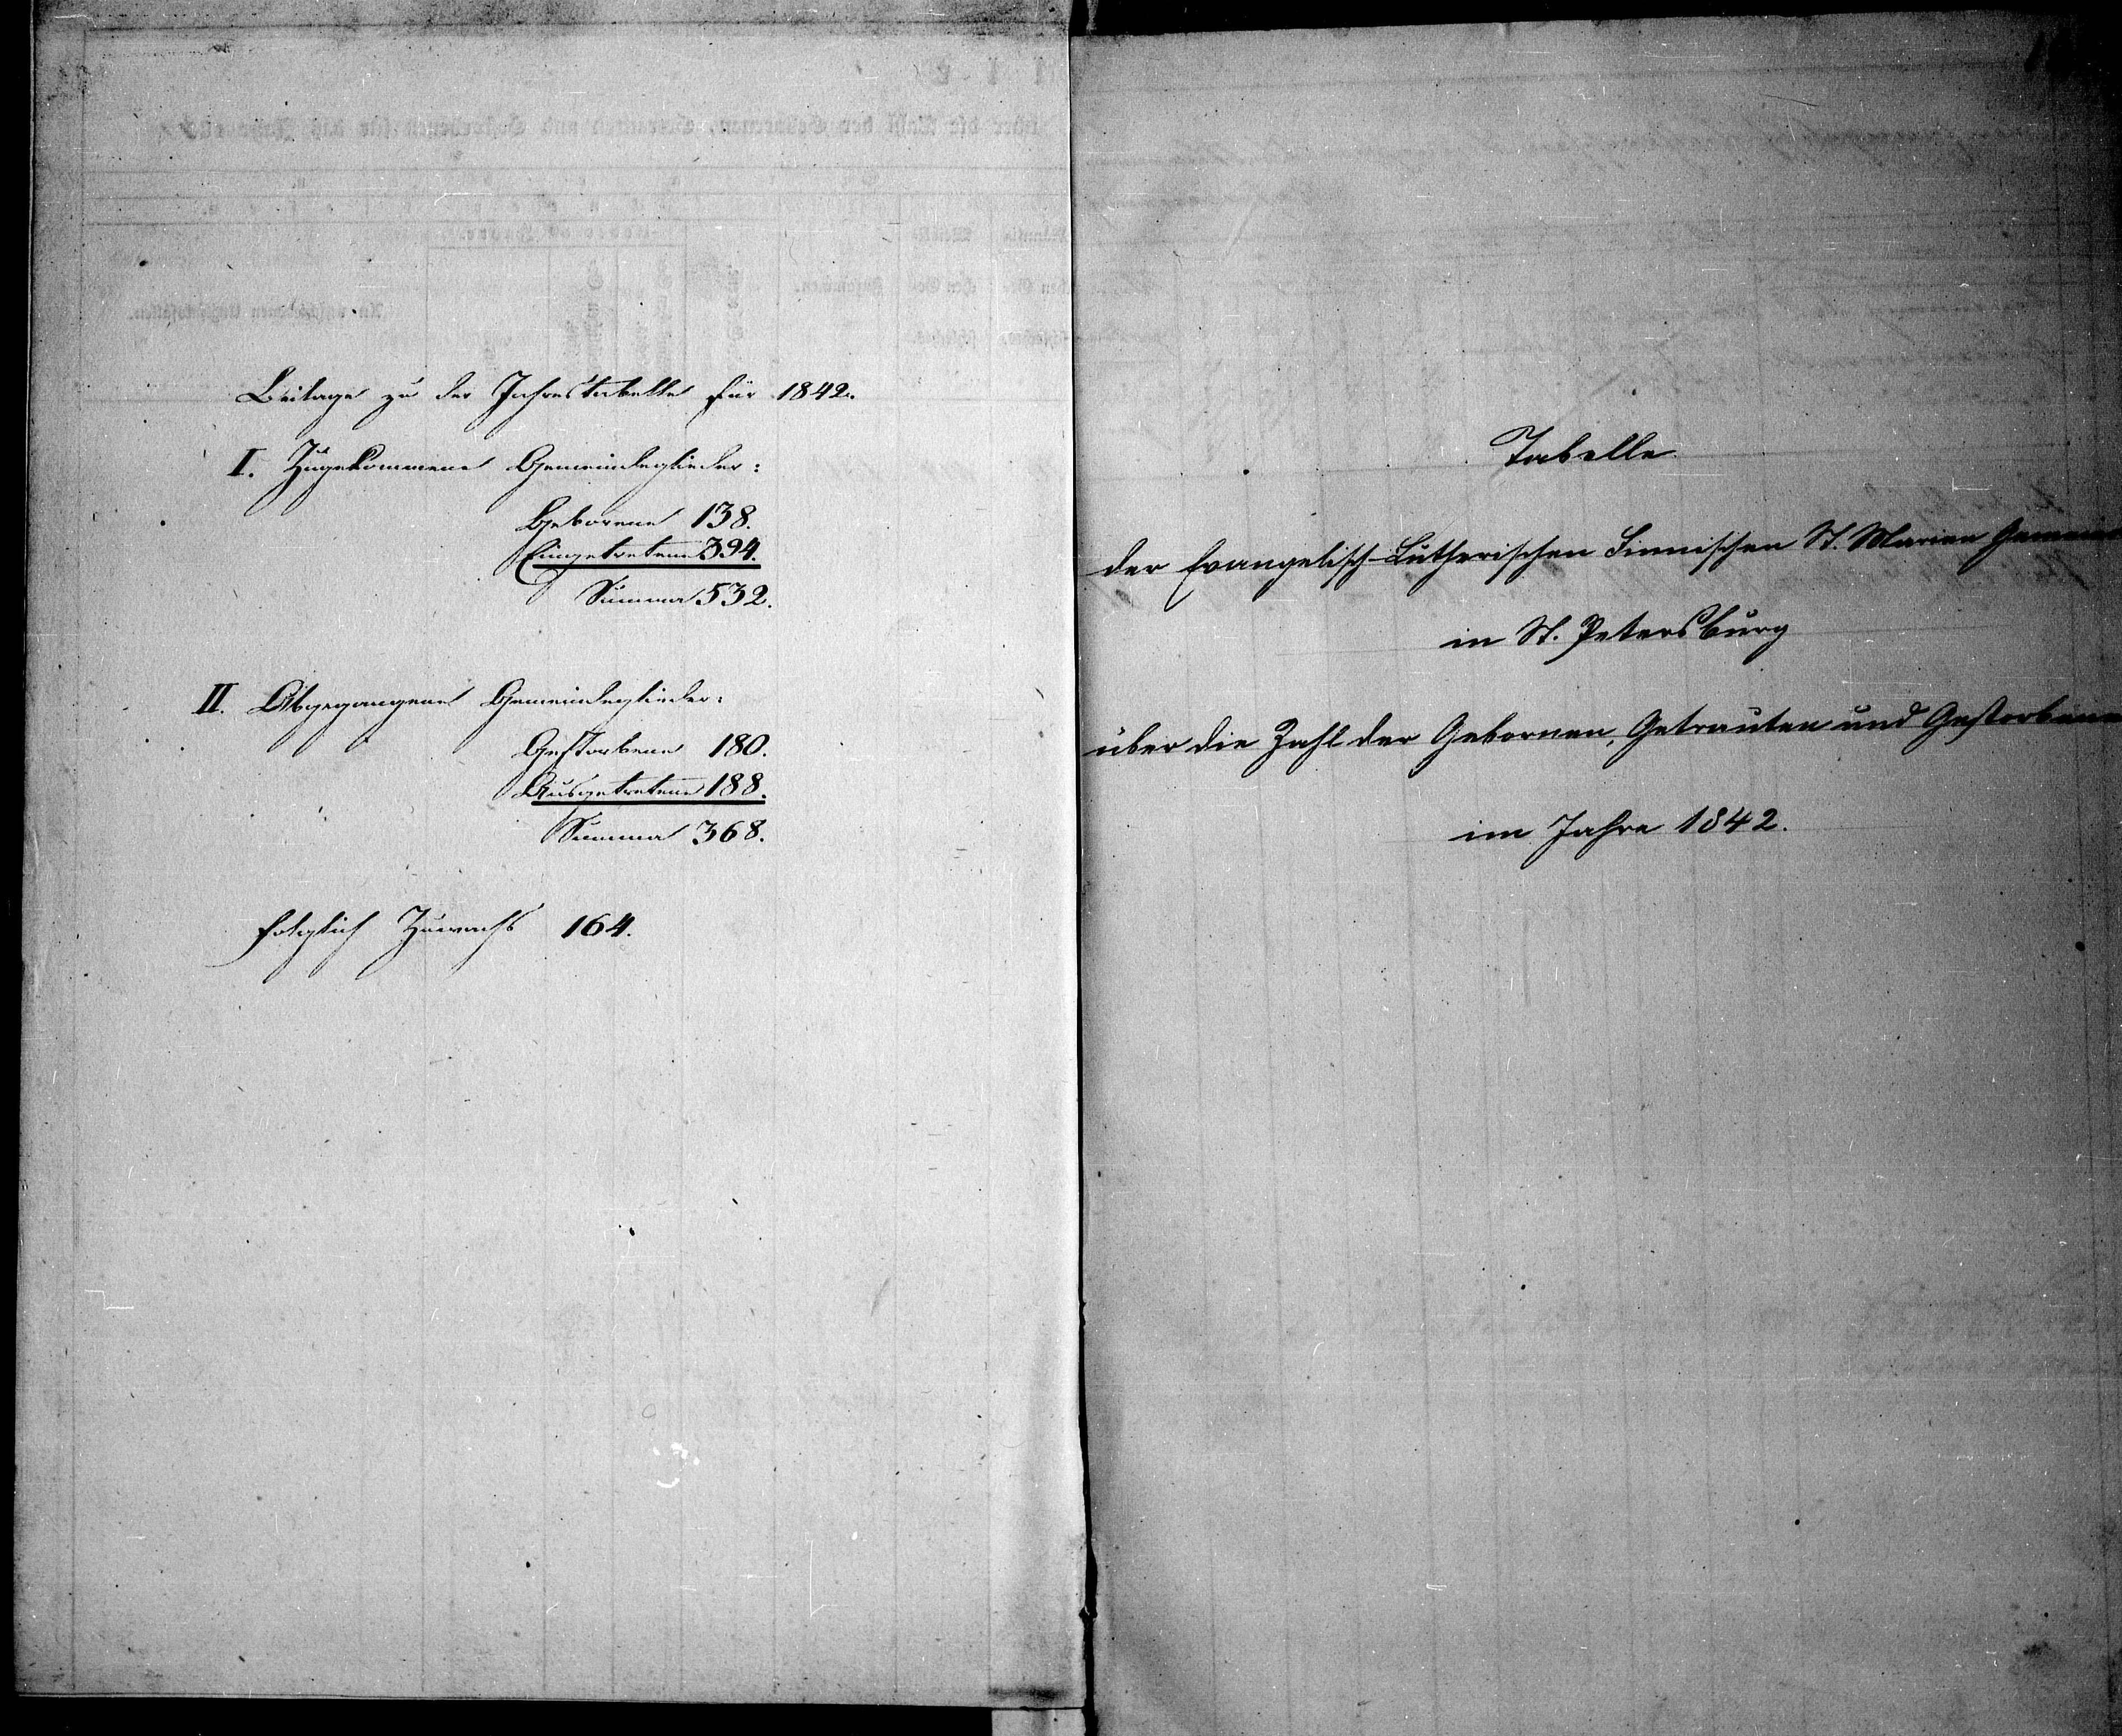 Beilage zu der Jahrestabelle für 1842.
I. Zugekommene Gemeindeglieder:
Geborene 138.
Eingetretene 394.
Summa 532.
II. Abgegangene Gemeindeglieder:
Gestorbene 180.
Ausgetretene 188.
Summa 368.
folglich Zuwachs 164.
Tabelle
der Evangelisch-Lutherischen Finnischen St. Marien Gemein
in St. Petersburg
über die Zahl der Gebornen, Getrauten und Gestorbene
im Jahre 1842.